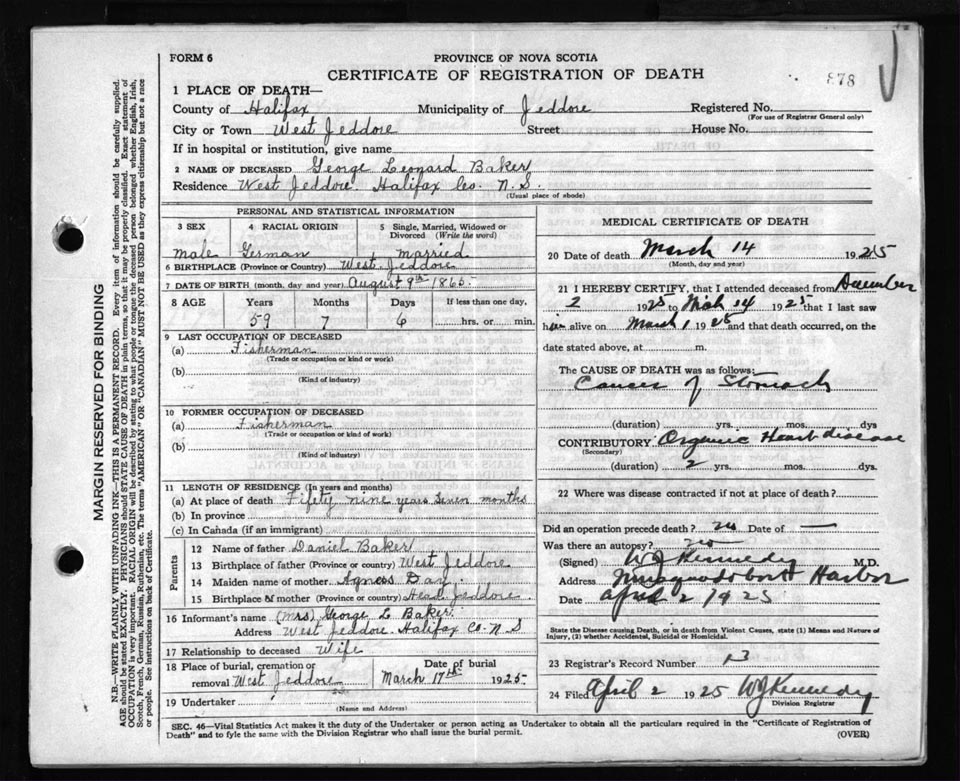 FORM 6
PROVINCE OF NOVA SCOTIA
CERTIFICATE OF REGISTRATION OF DEATH
878
1 PLACE OF DEATH—
County of Halifax Municipality of Jeddore Registered No.
(For use of Registrar General only)
City or Town West Jeddore Street House No.
If in hospital or institution, give name
2 NAME OF DECEASED George Leonard Baker
Residence West Jeddore Halifax Co. N.S.
(Usual place of abode)
PERSONAL AND STATISTICAL INFORMATION
3 SEX 4 RACIAL ORIGIN 5 Single, Married, Widowed or Divorced (Write the word)
male German married
6 BIRTHPLACE (Province or Country) West Jeddore
7 DATE OF BIRTH (month, day and year) August 9th 1865.
8 AGE Years Months Days If less than one day,
59 7 6 hrs. or min.
9 LAST OCCUPATION OF DECEASED
(a) Fisherman
(Trade or occupation or kind of work)
(b)
(Kind of industry)
10 FORMER OCCUPATION OF DECEASED
(a) Fisherman
(Trade or occupation or kind of work)
(b)
(Kind of industry)
11 LENGTH OF RESIDENCE (In years and months)
(a) At place of death Fifty nine years Seven months
(b) In province
(c) In Canada (if an immigrant)
Parents
12 Name of father Daniel Baker
13 Birthplace of father (Province or Country) West Jeddore
14 Maiden name of mother Agness Day.
15 Birthplace of mother (Province or country) Head Jeddore.
16 Informant's name (Mrs) George L Baker.
Address West Jeddore Halifax Co. N S
17 Relationship to deceased Wife
18 Place of burial, cremation or removal West Jeddore Date of burial March 17th 1925.
19 Undertaker
(Name and Address)
MEDICAL CERTIFICATE OF DEATH
20 Date of death March 14 1925
(Month, day and year)
21 I HEREBY CERTIFY, that I attended deceased from December
2 1925 to Mch 14 1925 that I last saw
him alive on March 1 1925 and that death occurred, on
date stated above, at m.
The CAUSE OF DEATH was as follows:
Cancer of Stomach
(duration) yrs. mos. dys
CONTRIBUTORY Organic Heart disease
(Secondary)
(duration) 2 yrs. mos. dys.
22 Where was disease contracted if not at place of death?
Did an operation precede death? no Date of —
Was there an autopsy? no
(Signed) W J Kennedy M.D.
Address Musquodoboit Harbor
Date April 2 1925
State the Disease causing Death, or in death from Violent Causes, state (1) Means and Nature of
Injury, (2) whether Accidental, Suicidal or Homicidal.
23 Registrar's Record Number
24 Filed April 2 1925 W J Kennedy
Division Registrar
SEC. 46—Vital Statistics Act makes it the duty of the Undertaker or person acting as Undertaker to obtain all the particulars required in the "Certificate of Registration of
Death" and to fyle the same with the Division Registrar who shall issue the burial permit.
(OVER)
MARGIN RESERVED FOR BINDING
N.B.—WRITE PLAINLY WITH UNFADING INK—THIS IS A PERMANENT RECORD. Every item of information should be carefully supplied.
AGE should be stated EXACTLY. PHYSICIANS should STATE CAUSE OF DEATH in plain terms, so that it may be properly classified. Exact statement of
OCCUPATION is very important. RACIAL ORIGIN will be described by stating to what people or tongue the deceased person belonged whether English, Irish,
Scotch, French, German, Russian, Ruthenian, etc. The terms "AMERICAN" or "CANADIAN" MUST NOT BE USED as they express citizenship but not a race
or people. See instructions on back of Certificate.